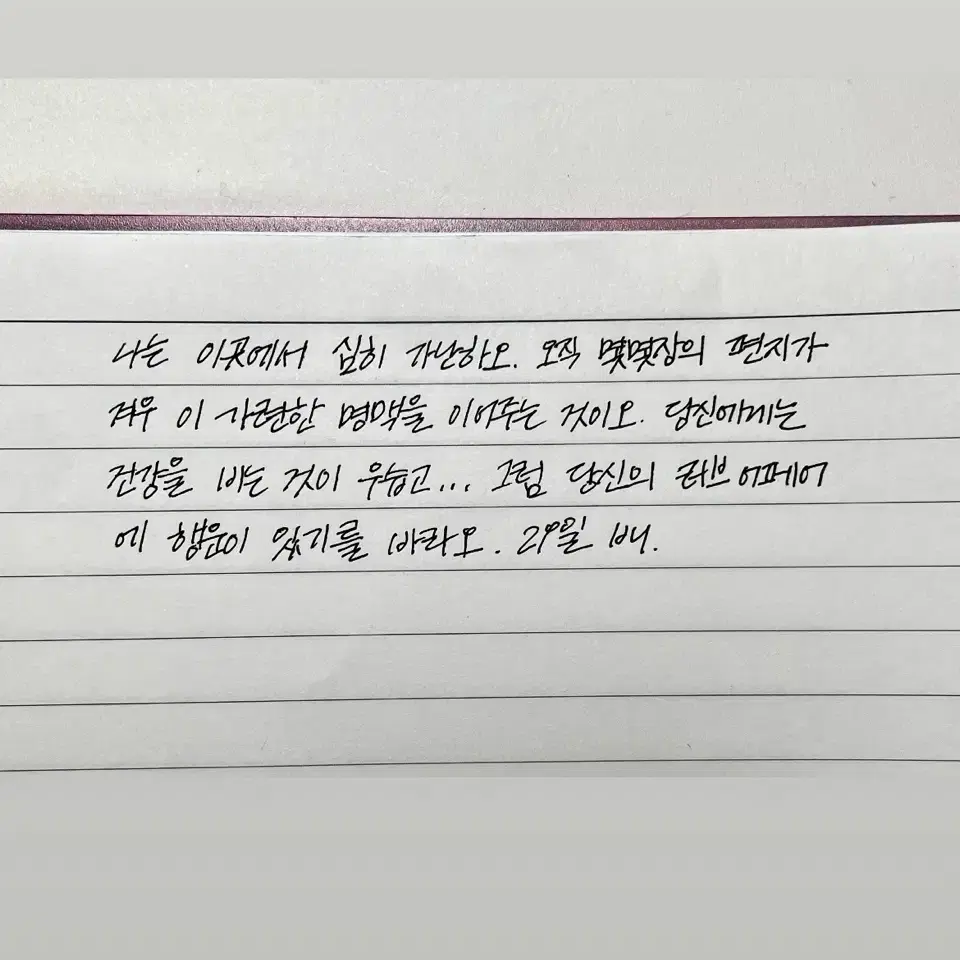 나는 이곳에서 심히 가난하오. 오직 몇몇장의 편지가
겨우 이 가련한 명맥을 이어주는 것이오. 당신에게는
건강을 비는 것이 우습고... 그럼 당신의 러브 어페어
에 행운이 있기를 바라오. 29일 배.